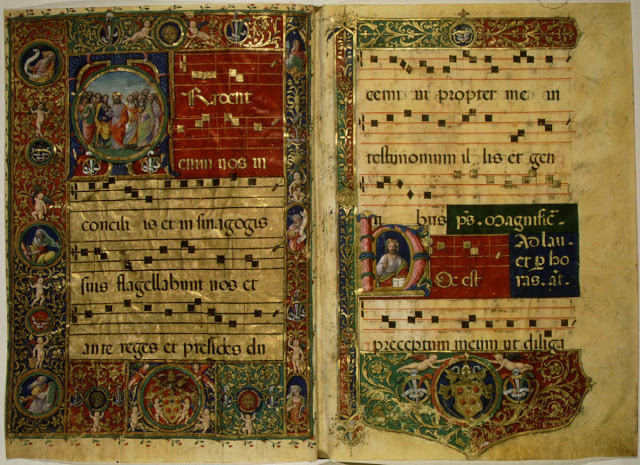 Tradent
enim vos in
concili is et in sinagogis
suis flagellabunt vos et
ante reges et presides du
cemi ni propter me in
testimonium il lis et gen
ti bus ps. Magnific.
Hoc est
Ad lau.
et p ho
ras. añ.
preceptum meum ut diliga